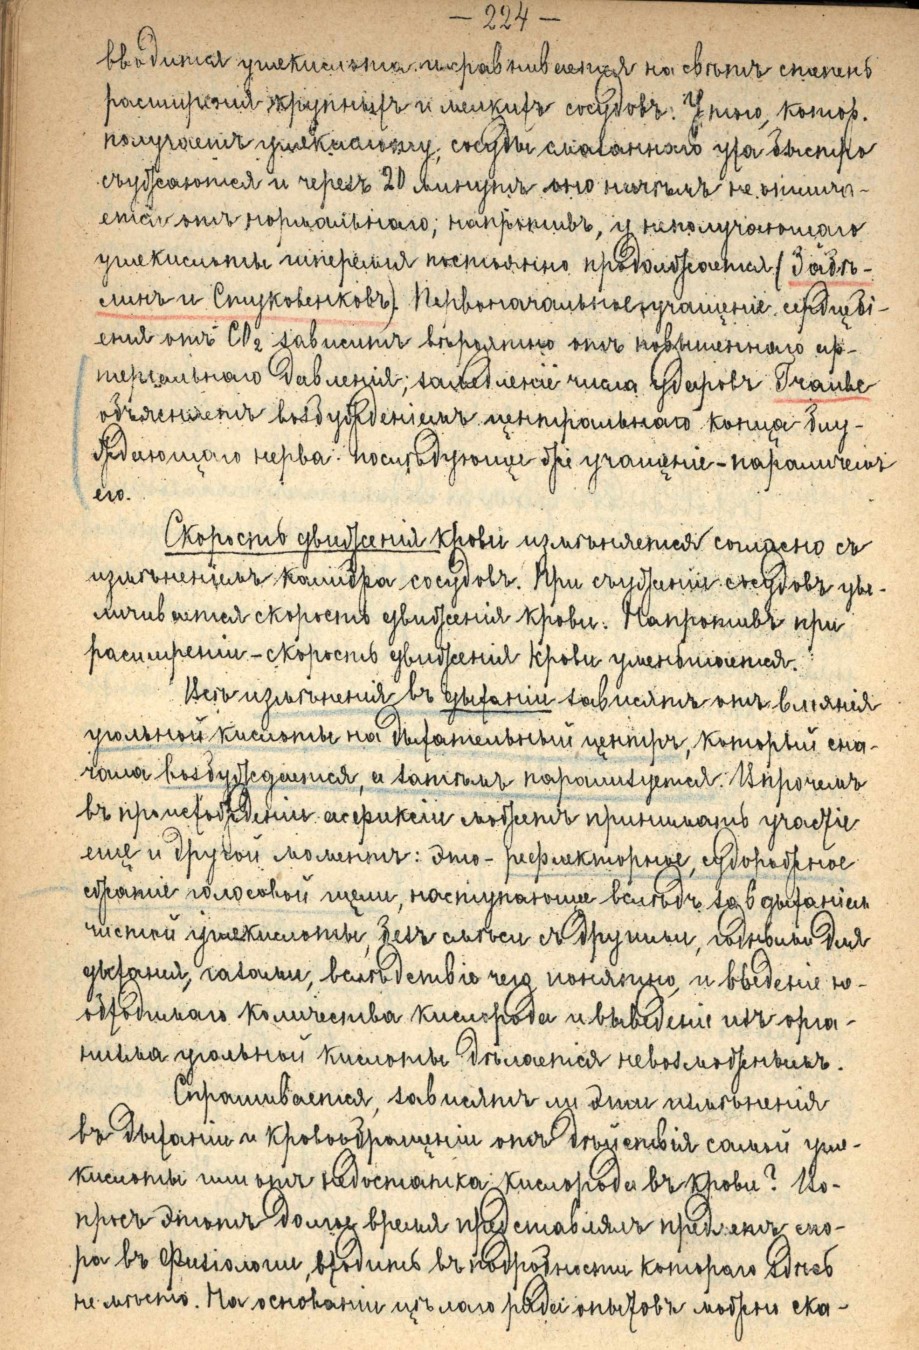 — 224 —
вводится углекислота и сравнивается на свѣтъ степень
расширенія крупныхъ и мелкихъ сосудовъ. У того, котор.
получаетъ углекислоту, сосуды сказаннаго уха быстро
съуживаются и черезъ 20 минутъ оно ничѣмъ не отлича-
ется отъ нормальнаго; напротивъ, у неполучающаго
углекислоты гиперемія постоянно продолжается (Забѣ-
линъ и Стуковенковъ). Первоначальное учащеніе сердцебі-
енія отъ CO₂ зависитъ вѣроятно отъ повышеннаго ар-
теріальнаго давленія; замедленіе числа ударовъ Траубе
объясняетъ возбужденіемъ центральнаго конца блу-
ждающаго нерва. послѣдующее же учащеніе – параличемъ
его.
Скорость движенія крови измѣняется согласно съ
измѣненіемъ калибра сосудовъ. При съуженіи сосудовъ уве-
личивается скорость движенія крови. Напротивъ при
расширеніи – скорость движенія крови уменьшается.
Всѣ измѣненія въ дыханіи зависятъ отъ вліянія
угольной кислоты на дыхательный центръ, который сна-
чала возбуждается, а затѣмъ парализуется. Впрочемъ
въ происхожденіи асфиксіи можетъ принимать участіе
еще и другой моментъ: это – рефлекторное, судорожное
сжатіе голосовой щели, наступающее вслѣдъ за вдыханіемъ
чистой углекислоты, безъ смѣси съ другими, годными для
дыханія, газами, вслѣдствіе чего понятно, и введеніе не-
обходимаго количества кислорода и выведеніе изъ орга-
низма угольной кислоты дѣлается невозможнымъ.
Спрашивается, зависятъ ли эти измѣненія
въ дыханіи и кровообращеніи отъ дѣйствія самой угле-
кислоты или отъ недостатка кислорода въ крови? Во-
просъ этотъ долгое время представлялъ предметъ спо-
ра въ физіологіи, входить въ подробности котораго здѣсь
не мѣсто. На основаніи цѣлаго ряда опытовъ можно ска-